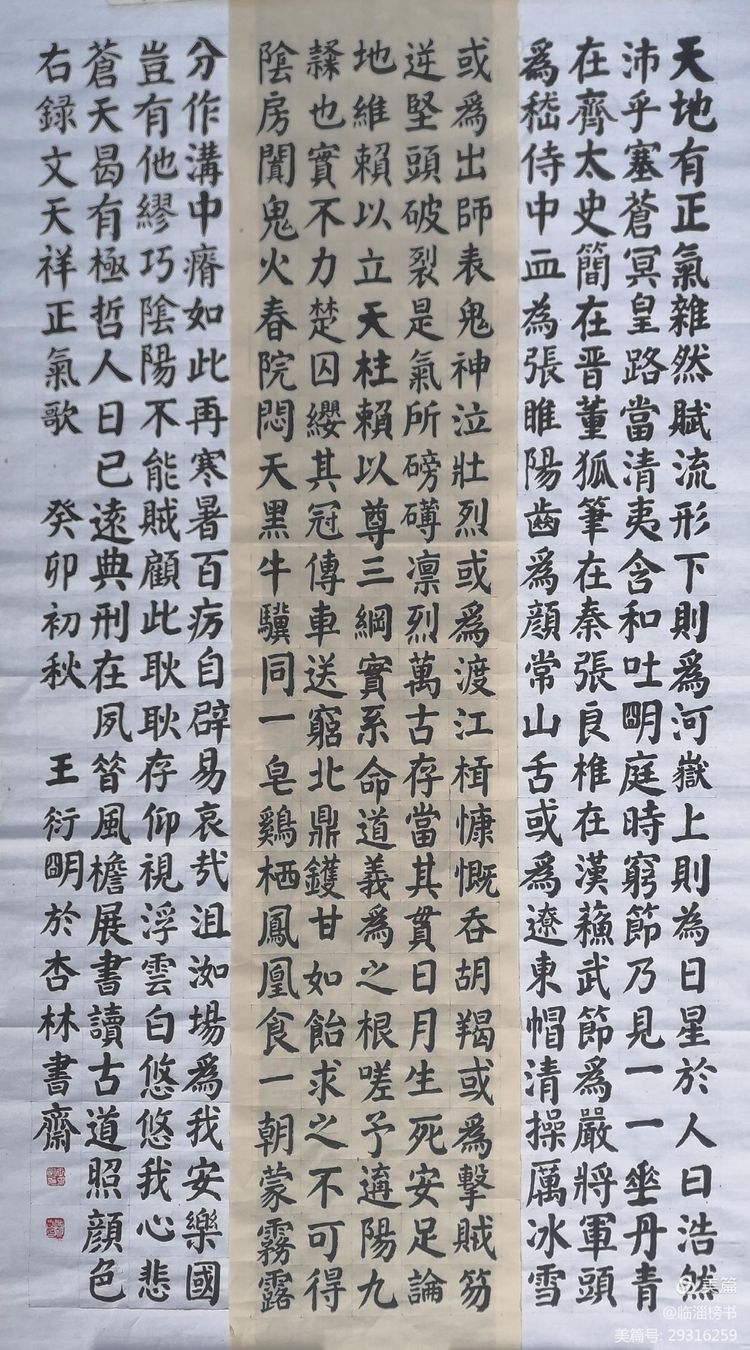 天地有正氣雜然賦流形下則爲河嶽上則為日星於人曰浩然
沛乎塞蒼冥皇路當清夷含和吐朙庭時窮節乃見一一垂丹青
在齊太史簡在晋董狐筆在秦張良椎在漢蘇武節爲嚴將軍頭
爲嵇侍中血為張睢陽齒爲顔常山舌或爲遼東帽清操厲冰雪
或爲出師表鬼神泣壯烈或爲渡江楫慷慨吞胡羯或爲擊賊笏
逆堅頭破裂是氣所磅礴凛烈萬古存當其貫日月生死安足論
地維賴以立天柱賴以尊三綱實系命道義爲之根嗟予遘陽九
隸也實不力楚囚纓其冠傳車送窮北鼎鑊甘如飴求之不可得
陰房闃鬼火春院悶天黑牛驥同一皂鷄栖鳳凰食一朝蒙霧露
分作溝中瘠如此再寒暑百疠自辟易哀哉沮洳場爲我安樂國
豈有他繆巧陰陽不能賊顧此耿耿存仰視浮雲白悠悠我心悲
蒼天曷有極哲人日已遠典刑在夙昔風檐展書讀古道照顔色
右録文天祥正氣歌 癸卯初秋 王衍朙於杏林書齋
美篇
@临淄榜书
美篇号: 29316259